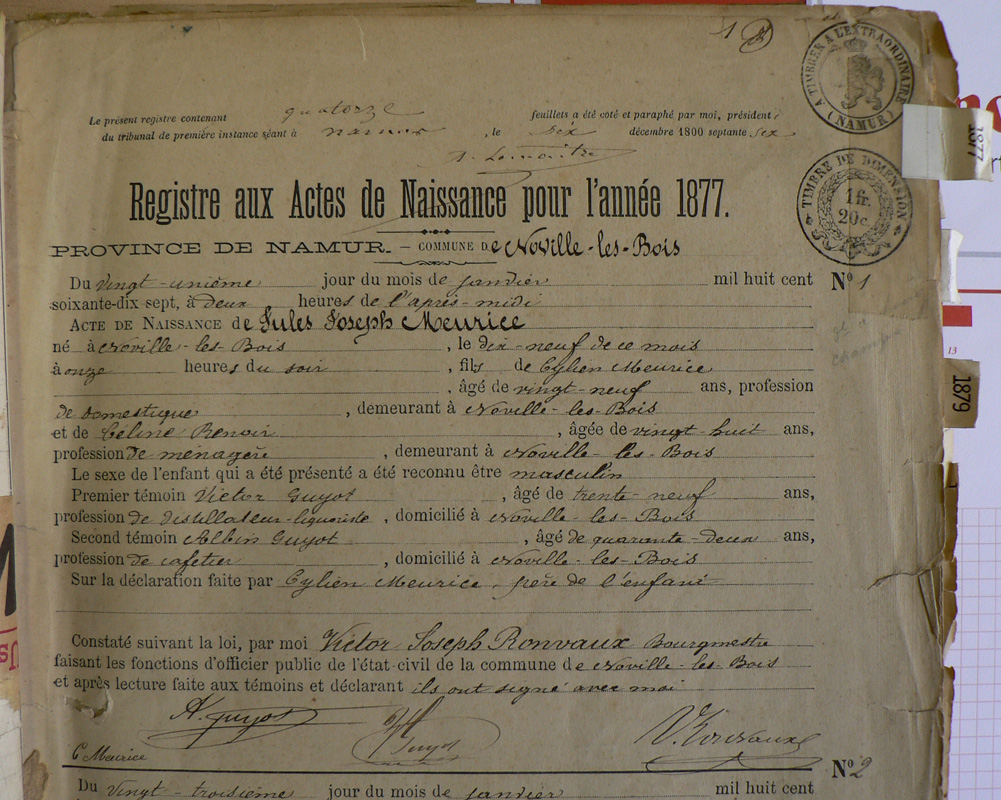 1
A TIMBRER A L'EXTRAORDINAIRE (NAMUR)
Le présent registre contenant quatorze feuillets a été coté et paraphé par moi, président
du tribunal de première instance séant à Namur, le six décembre 1800 septante six
TIMBRE DE DIMENSION
1 fr.
20 c.
Registre aux Actes de Naissance pour l'année 1877.
PROVINCE DE NAMUR. — COMMUNE De Noville-les-Bois
Du vingt-unième jour du mois de janvier mil huit cent
soixante-dix sept, à deux heures de l'après-midi
N° 1
ACTE DE NAISSANCE de Jules Joseph Meurice
né à Noville-les-Bois, le dix-neuf de ce mois
à onze heures du soir, fils de Cylien Meurice
, âgé de vingt-neuf ans, profession
de domestique, demeurant à Noville-les-Bois
et de Celine Renoir, âgée de vingt-huit ans,
profession de ménagère, demeurant à Noville-les-Bois
Le sexe de l'enfant qui a été présenté a été reconnu être masculin
Premier témoin Victor Guyot, âgé de trente-neuf ans,
profession de distillateur-liquoriste, domicilié à Noville-les-Bois
Second témoin Albin Guyot, âgé de quarante-deux ans,
profession de cafetier, domicilié à Noville-les-Bois
Sur la déclaration faite par Cylien Meurice, père de l'enfant
Constaté suivant la loi, par moi Victor Joseph Ronvaux Bourgmestre
faisant les fonctions d'officier public de l'état-civil de la commune de Noville-les-Bois
et après lecture faite aux témoins et déclarant ils ont signé avec moi
A. Guyot
V Guyot
V. Ronvaux
C Meurice
N° 2
Du vingt-troisième jour du mois de janvier mil huit cent
1877
1879
13